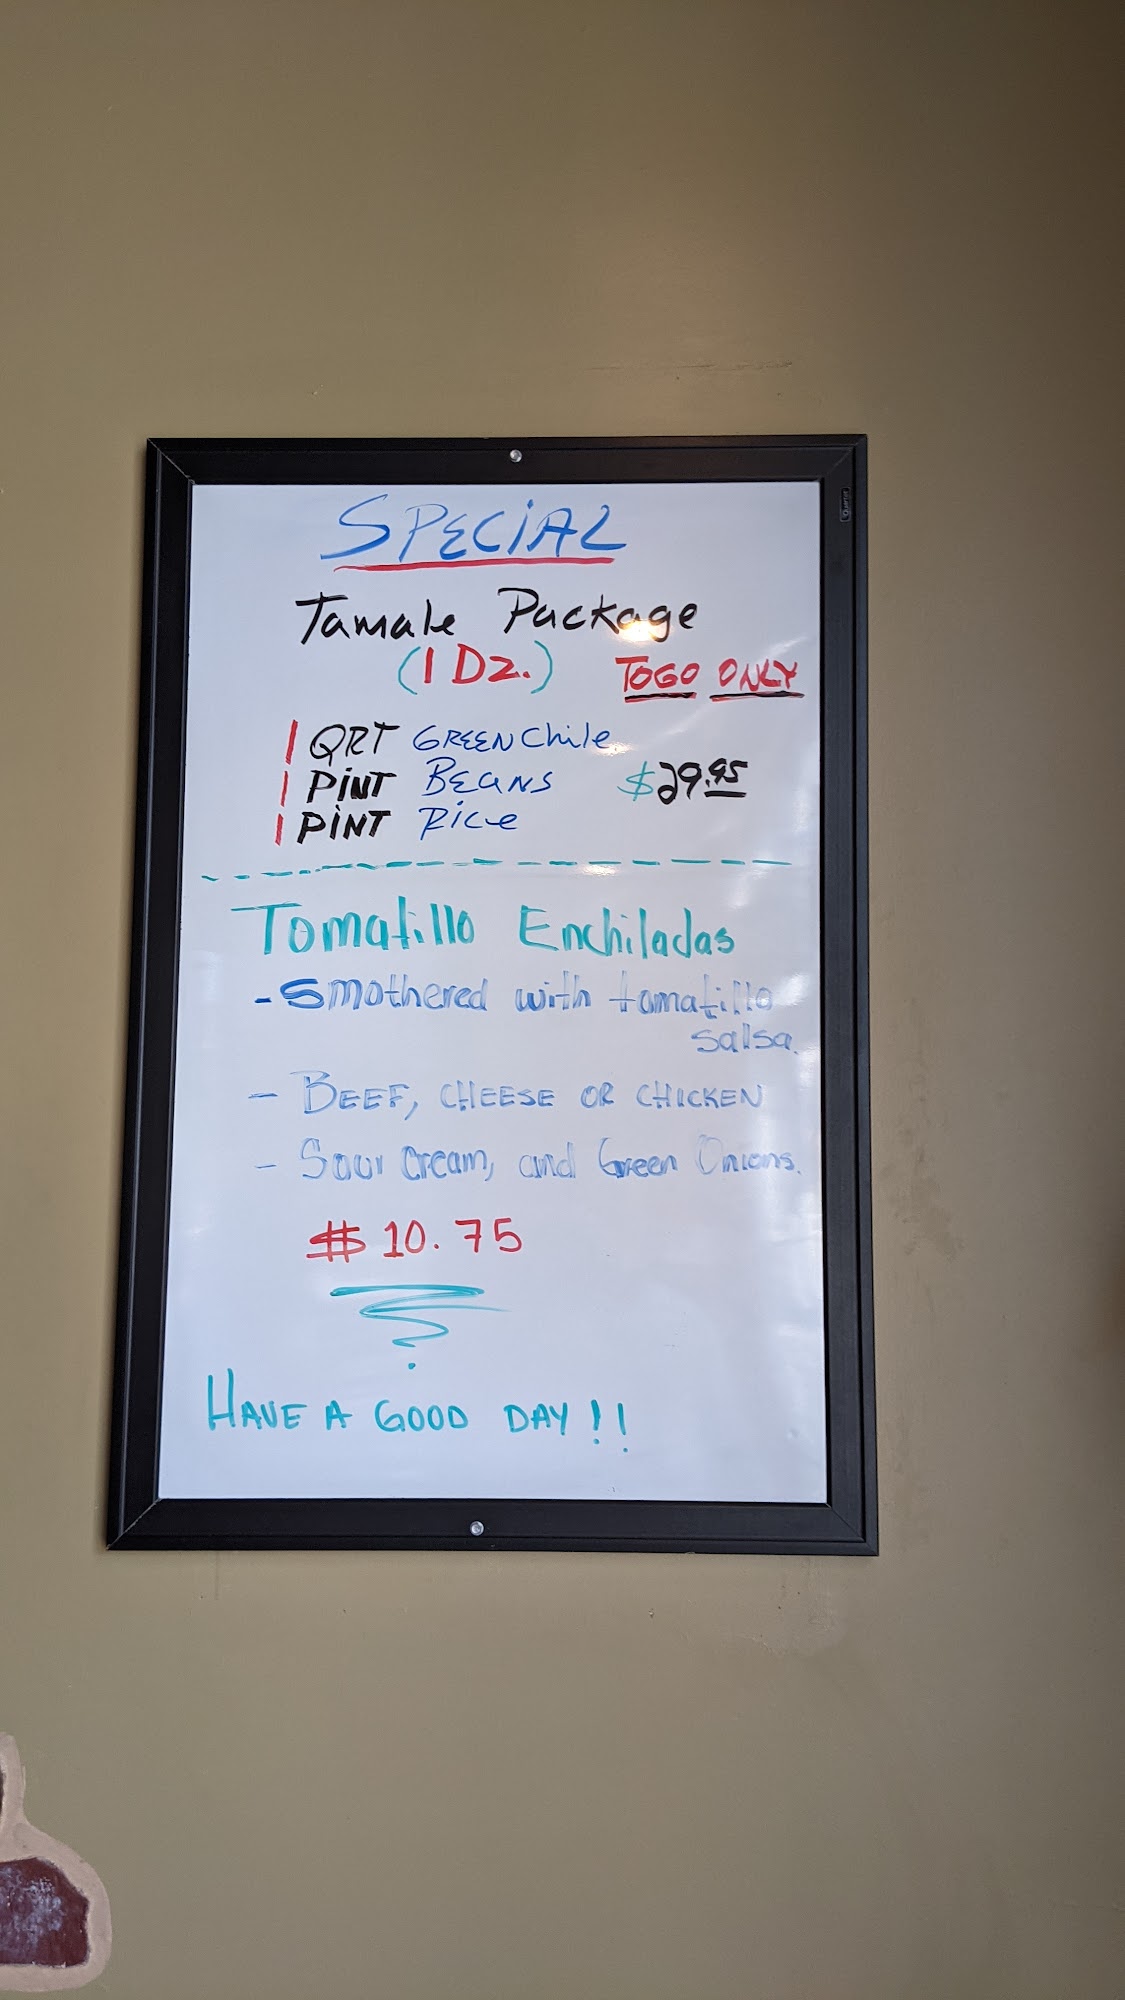 SPECIAL
Tamale Package
(1 DZ.) TOGO ONLY
1 QRT GREEN Chile
1 PINT BEANS $29.95
1 PINT Rice
Tomatillo Enchiladas
- Smothered with tamatillo
salsa.
- BEEF, CHEESE OR CHICKEN
- Sour Cream, and Green Onions.
$10.75
HAVE A GOOD DAY!!